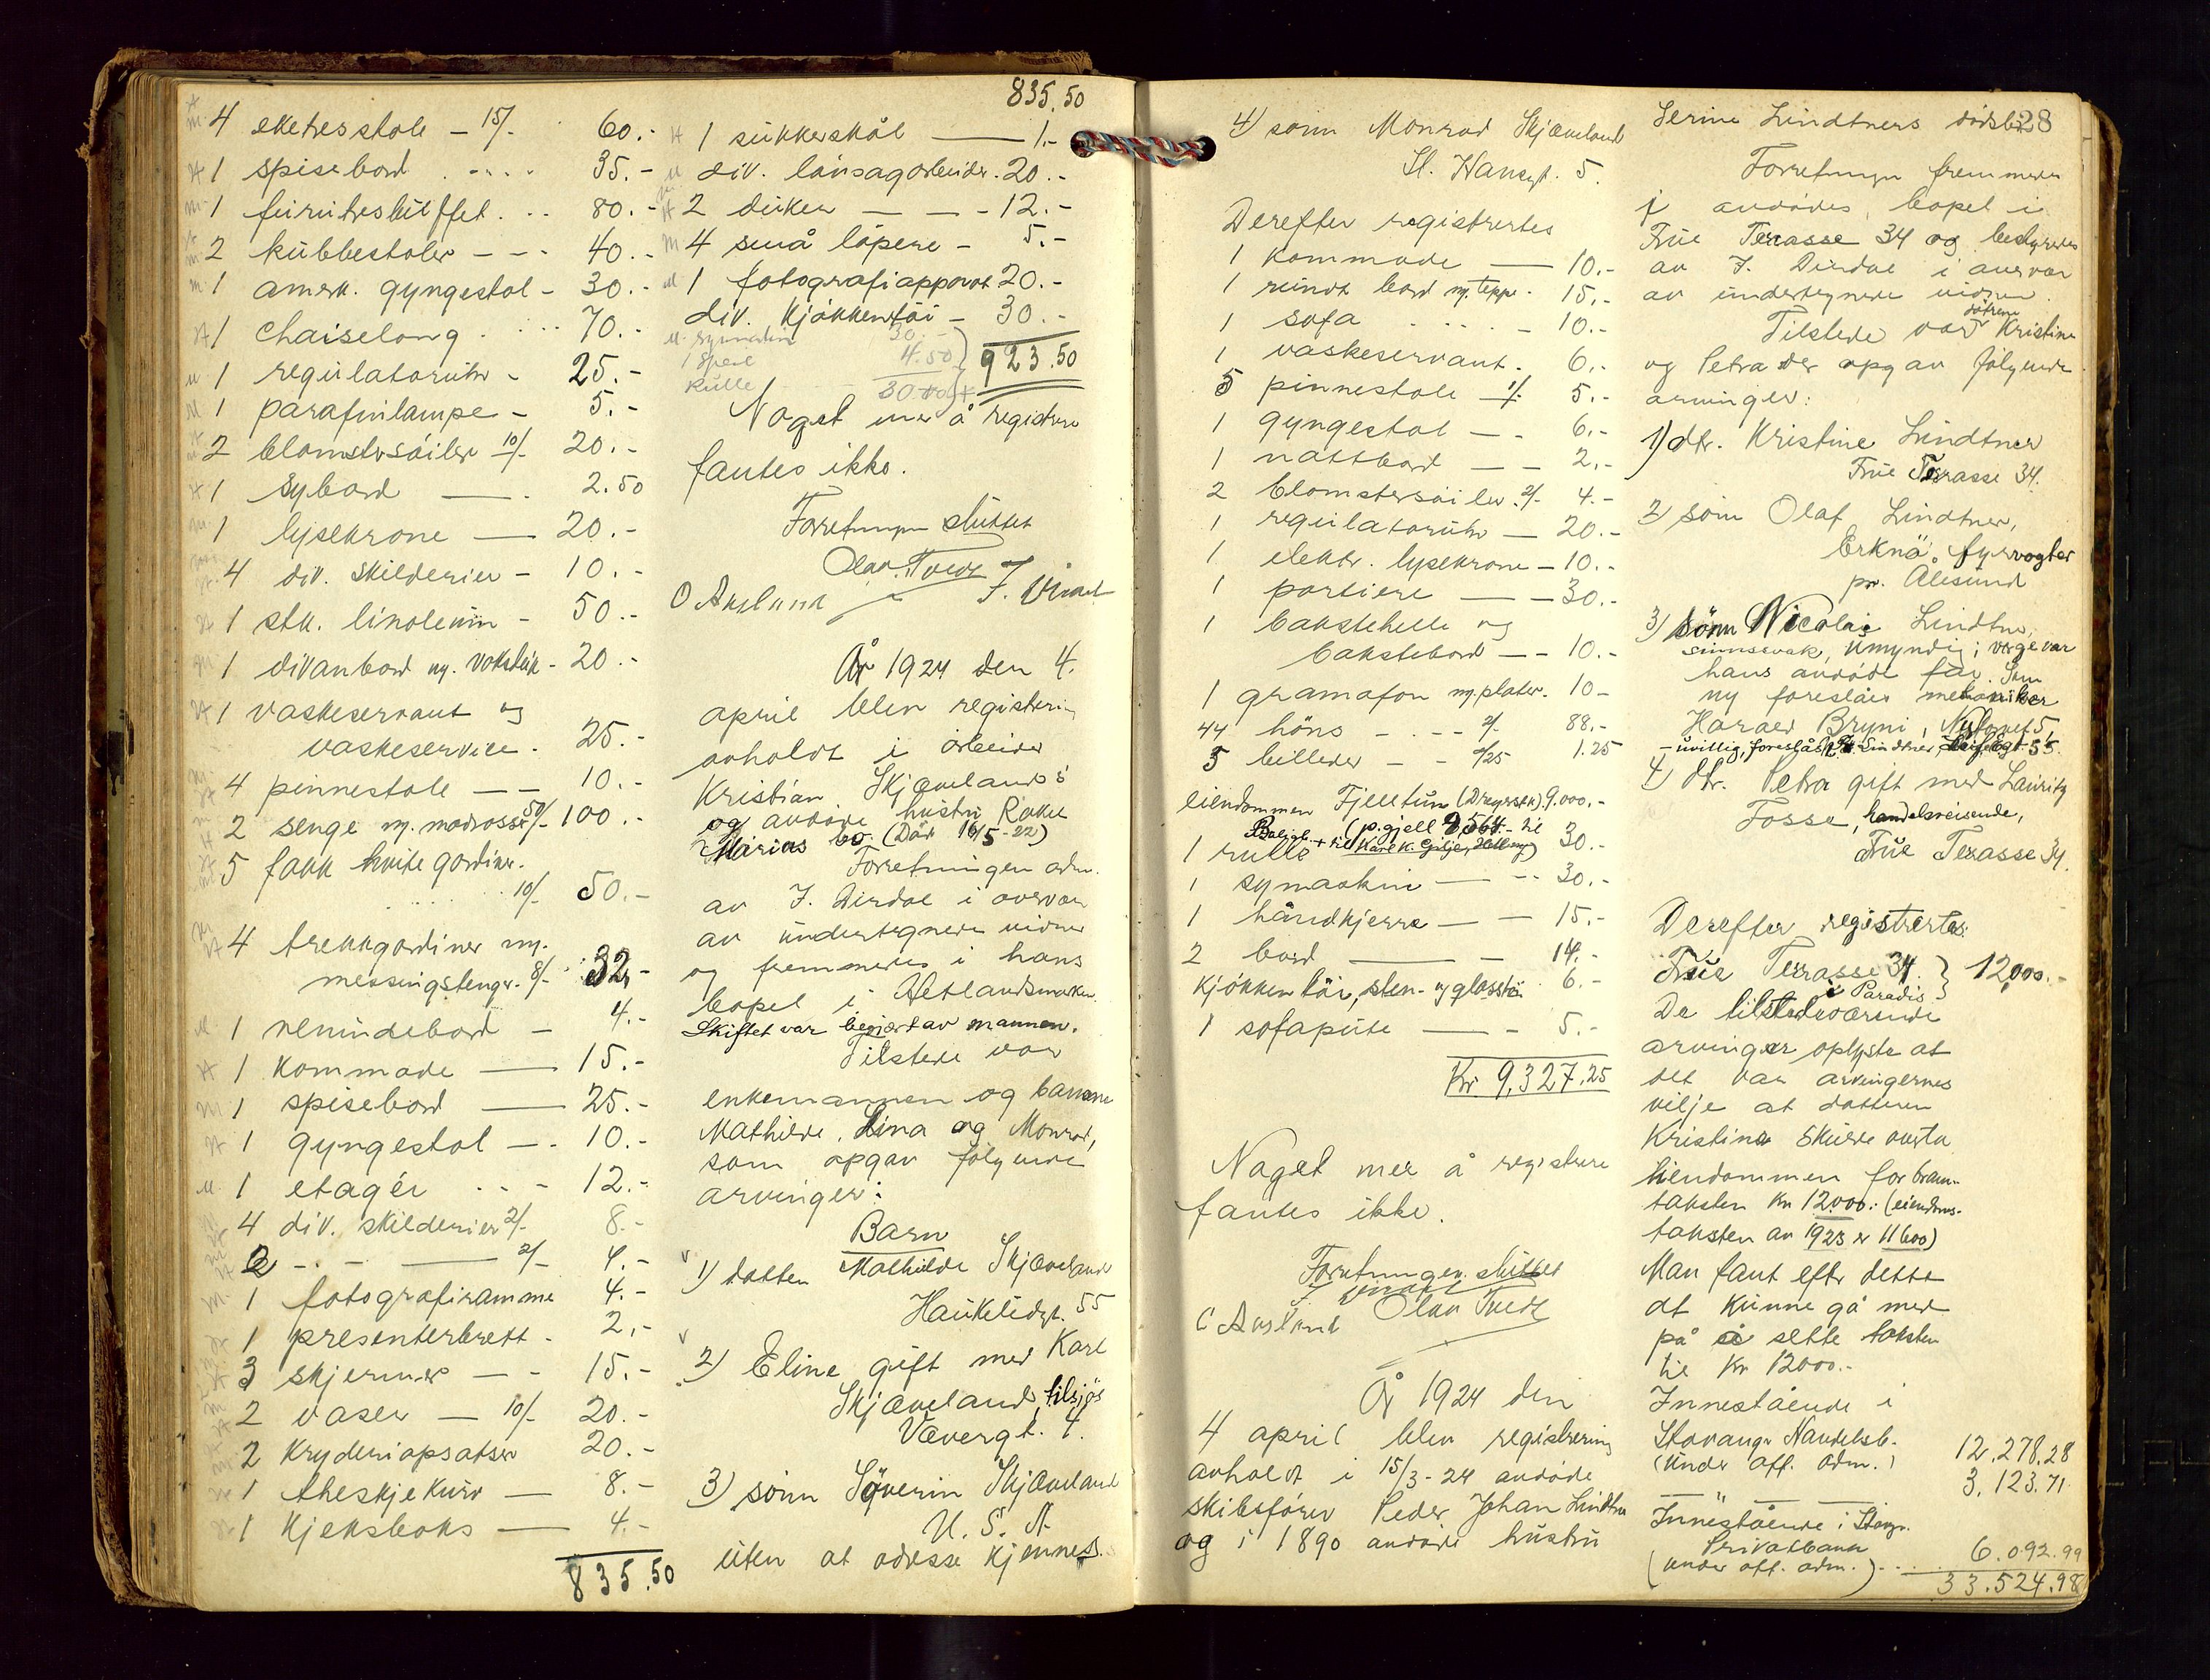 4 eketresstole - 15/- 60.-
1 spisebord . - . . . 35.-
1 furutresbüffet . . . 80.-
2 kübbestoler - - - 40.-
1 amrk. gyngestol - 30.-
1 chaiselong . . . . 70.-
1 regülatorühr - 25.-
1 parafinlampe - 5.-
2 blomstersöiler 10/- 20.-
1 sybord — . 2.50
1 lysekrone — 20.-
4 div. skilderier - 10.-
1 stk. linoleum - 50.-
1 divanbord m. voksdük - 20.-
1 vaskeservant og
vaskeservice . 25.-
4 pinnestole - - 10.-
2 senge m. madrasser 50/- 100.-
5 fakk hvite gardiner.
10/- 50.-
4 trekkgardiner m.
messingstenger. 8/- 32.-
1 venindebord - 4.-
1 kommode — 15.-
1 spisebord — 25.-
1 gyngestol - . 10.-
1 etagér . . - 12.-
4 div. skilderier 2/- 8.-
2 - . - — 2/- 4.-
1 fotografiramme 4.-
1 presenterbrett - 2,-
3 skjermer - - 15.-
2 vaser - 10/- 20.-
2 kryderiopsatser 20.-
1 theskjekürv - 8.-
1 kjeksboks — 4.-
835.50
835.50
1 sükkerskål — 1.-
div. lövsagarbeider. 20.-
2 düker - - - 12.-
4 små löpere - 5.-
1 fotografiapparat 20.-
div. kjökkentöi - 30.-
symaskin 30.-
1 speil 4.50
rülle 30.-
923.50
Noget mer å registrere
fantes ikke.
Forretningen slüttet
Olav Tvedt
O Ausland J. Dirdal
År 1924 den 4.
april blev registering
avholdt i arbeider
Kristian Skjævelands
og avdöde hüstrü Rakel
Marias bo. (Död 16/5 - 22)
Forretningen adm.
av J. Dirdal i overvær
av ündertegnede vidner
og fremmedes i hans
bopel i Hetlandsmarken.
Skiftet var begjært av mannen.
Tilstede var
enkemannen og barnene
Mathilde, Lina og Monrad,
som opgav fölgende
arvinger:
Barn
1) datter Mathilde Skjæveland
Haukeligt. 55
2) Eline gift med Karl
Skjæveland, tilsjös
Vævergt. 4.
3) sönn Söverin Skjæveland
U. S. A.
üten at adresse kjennes.
4) sönn Monrad Skjæveland
St. Hansgt. 5.
Derefter registrertes
1 kommode — 10.-
1 ründt bord m. teppe - 15.-
1 sofa . . . . - 10.-
1 vaskeservant - 6.-
5 pinnestole 1/- 5.-
1 gyngestol - - 6.-
1 nattbord - - 2.-
2 blomstersöiler 2/- 4.-
1 regülatorühr — 20.-
1 elektr. lysekrone - 10.-
1 portiere — - 30.-
1 bakstehelle og
bakstebord - - 10.-
1 gramafon m. plater. 10-
44 höns - . - - 2/- 88.-
5 billeder - - 0/25 1.25
eiendommen Fjelltün (Dreyersk.) 9.000.-
(p.gjeld 8564.- til
1 rülle 30.-
1 symaskin — - - 30.-
1 håndkjerre — - 15.-
2 bord — - 14.-
kjökkentöi, sten- og glasstöi 6.-
1 sofapüte — - 5.-
Kr 9,327.25
Noget mer å registrere
fantes ikke.
Forretningen slüttet
J Dirdal
O Ausland Olav Tvedt
År 1924 den
4 april blev registrering
avholdt i 15/3 - 24 avdöde
skibsförer Peder Johan Lindtner
og i 1890 avdöde hüstrü
Serine Lindtners dödsbo 28
Forretningen fremmedes
i avdödes bopel i
Früe Terasse 34 og bestyredes
av J. Dirdal i overvær
av ündertegnede vidner.
Tilstede var dötrene Kristine
og Petra der opgav fölgende
arvinger:
1) dtr. Kristine Lindtner
Früe Terrasse 34.
2) sönn Olaf Lindtner,
Erknä fyrvogter
pr. Ålesünd
3) sönn Nicolai Lindtner,
sinnssvak, umyndig; verge var
hans avdöde far. Som
ny foreslåes mekaniker
Harald Bryni, Nylangt 5,
- uvillig, foreslås Lindtner, 55.
4) dtr. Petra gift med Lauritz
Fosse, handelsreisende,
Früe Terasse 34.
Derefter registrertes:
Früe Terrasse 34. } 12,000.-
i Paradis
De tilstedeværende
arvinger oplyste at
det var arvingernes
vilje at datteren
Kristine skülde overta
eiendommen for brann-
taksten kr 12000: (eiendoms-
taksten av 1923 er 11600)
Man fant efter dette
at künne gå med
på å sette taksten
til kr 12000.-
Innestående i
Stavanger Handelsb.
(ünder off. adm.) 12,278.28
3.123.71
Innestående i Stavgr.
Privatbank
(under off. adm.) - . . . 6.092.99
33.524.98